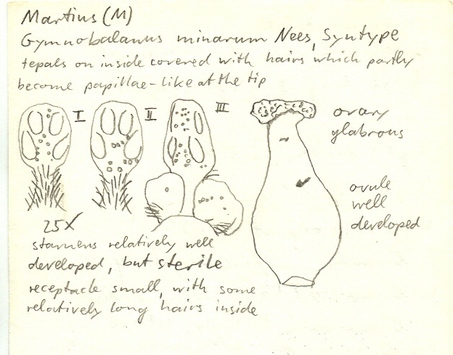 Martius (M)
Gymnobalanus minarum Nees, Syntype
tepals on inside covered with hairs which partly
become papillae-like at the tip
I II III
ovary
glabrous
ovule
well
developed
25x
stamens relatively well
developed, but sterile
receptacle small, with some
relatively long hairs inside